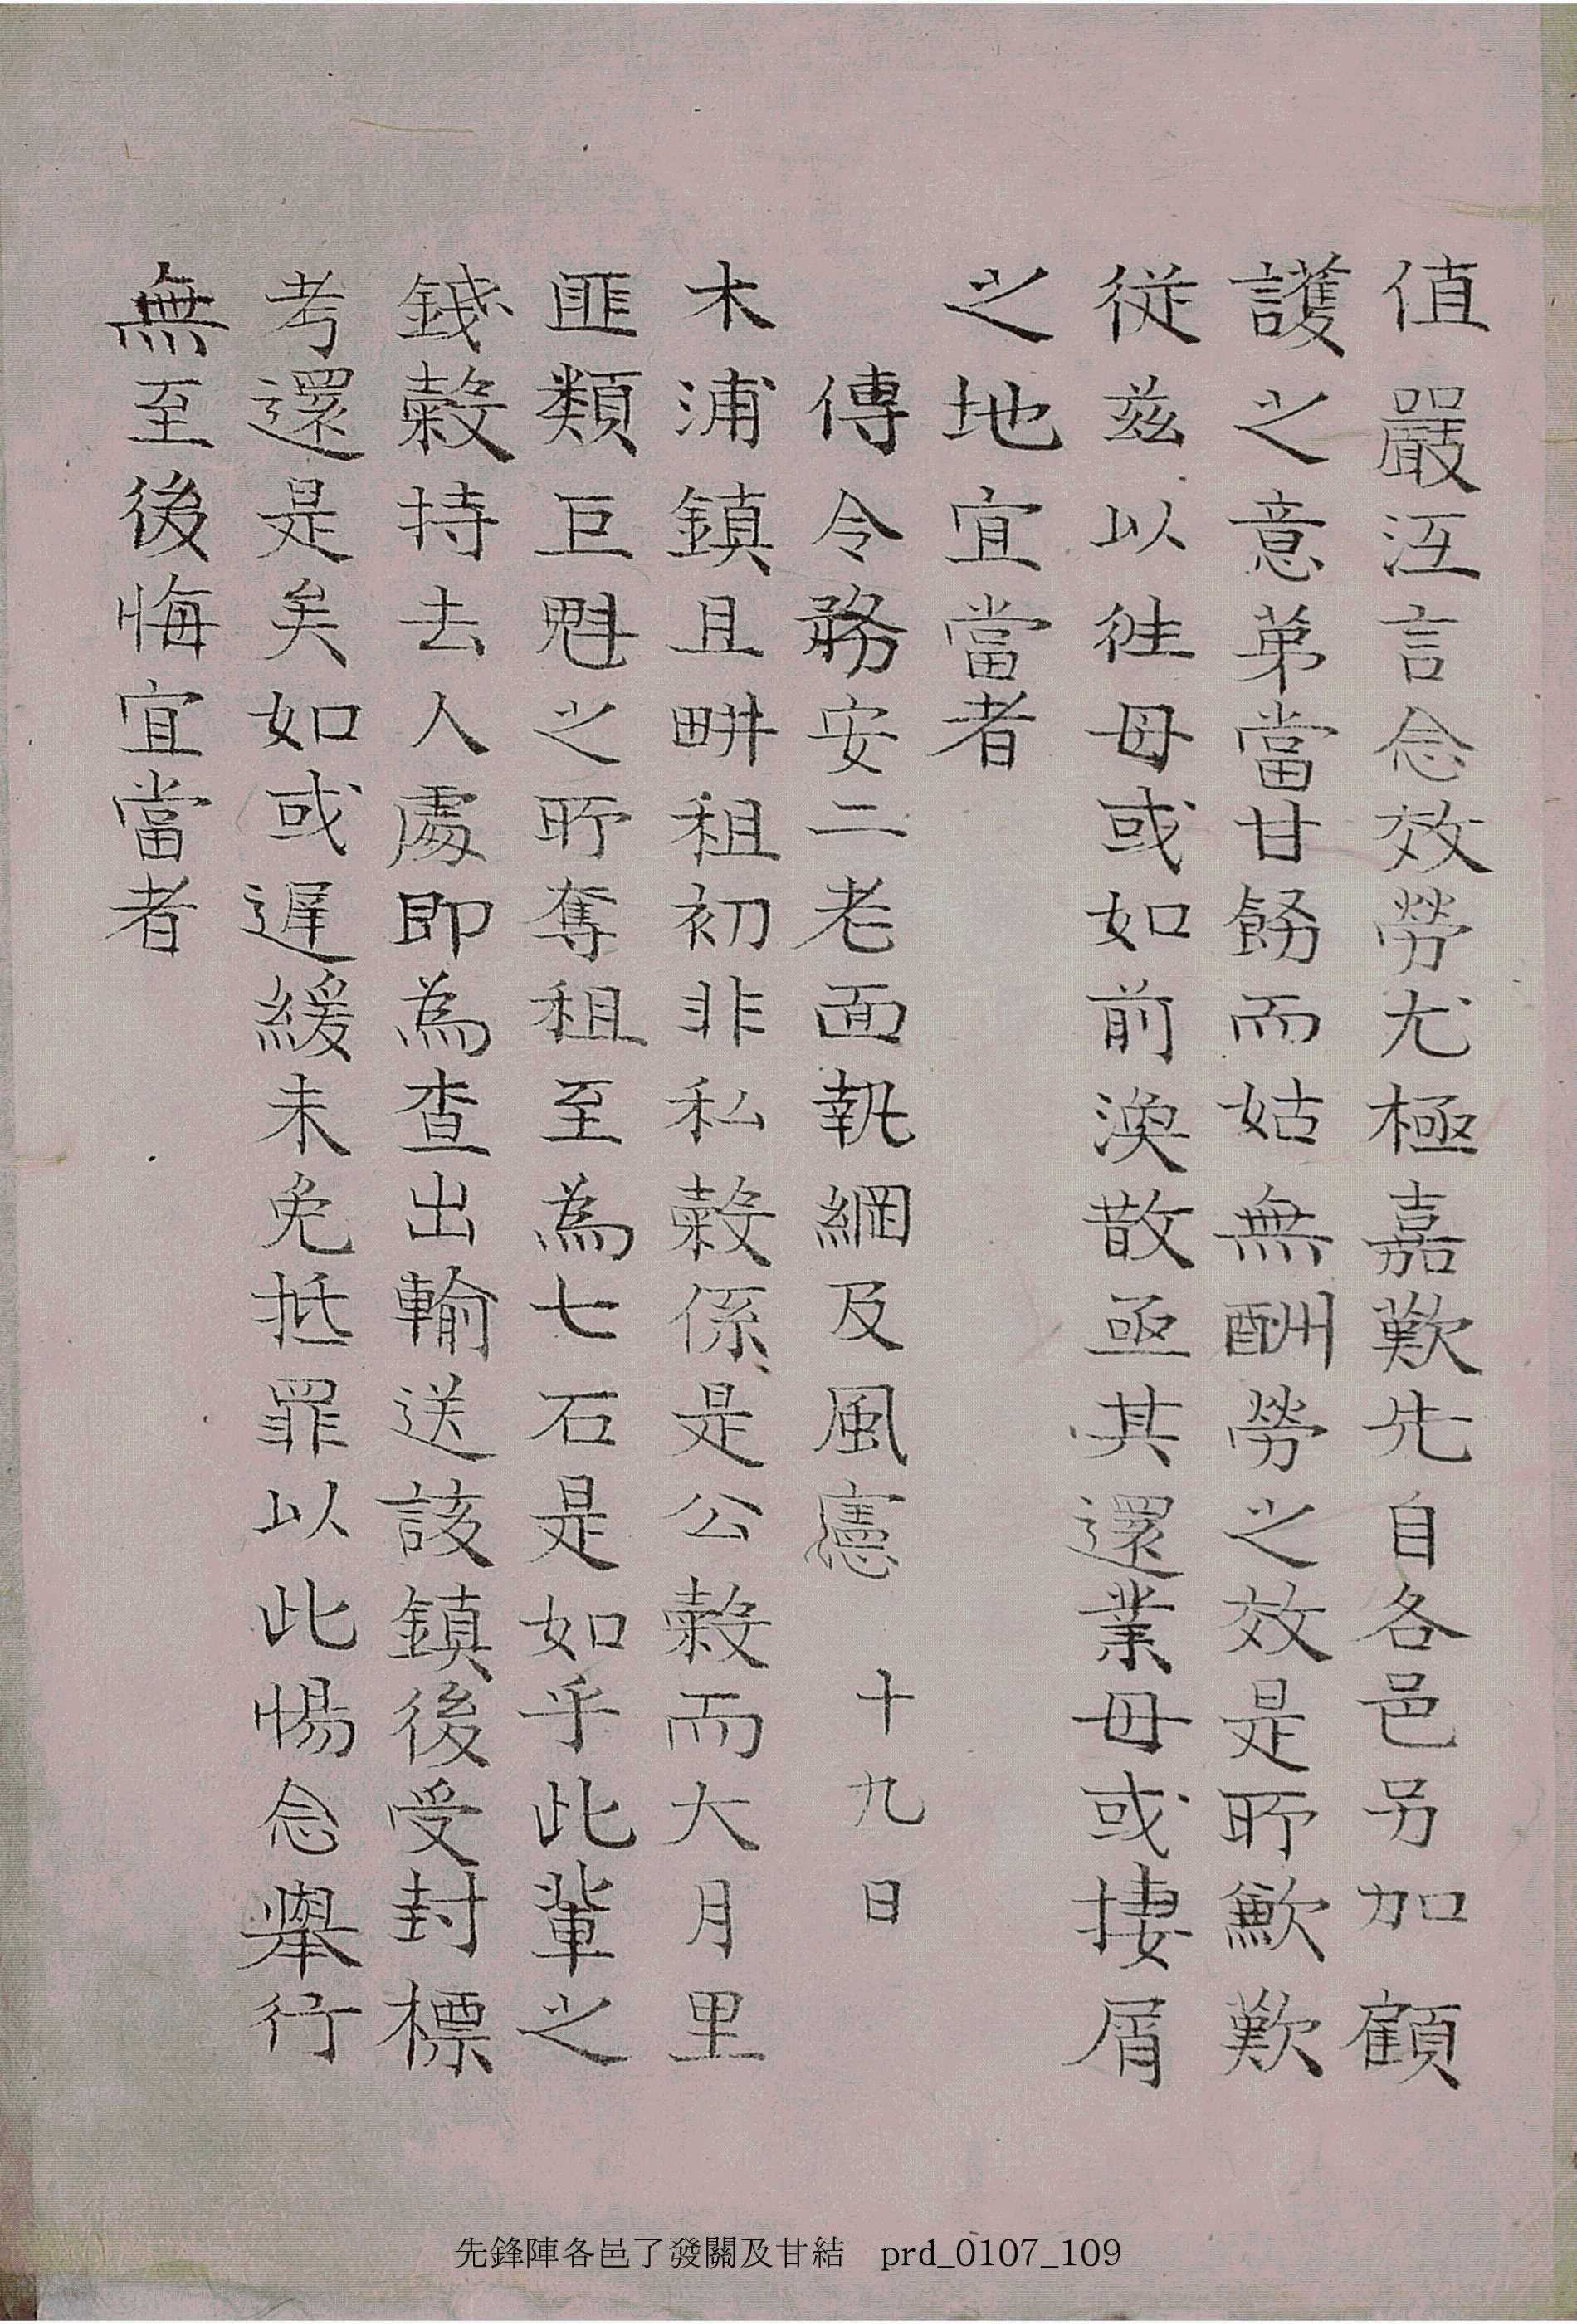 值嚴沍言念效勞尤極嘉歎先自各邑另加顧
護之意第當甘飭而姑無酬勞之效是所歉歎
從玆以往毋或如前渙散亟其還業毋或捿屑
之地宜當者
傳令務安二老面執網及風憲 十九日
木浦鎮且畊租初非私糓係是公糓而大月里
匪類巨魁之所奪租至為七石是如乎此輩之
錢糓持去人處即為查出輸送該鎮後受封標
考還是矣如或遲緩未免抵罪以此惕念擧行
無至後悔宜當者
先鋒陣各邑了發關及甘結 prd_0107_109